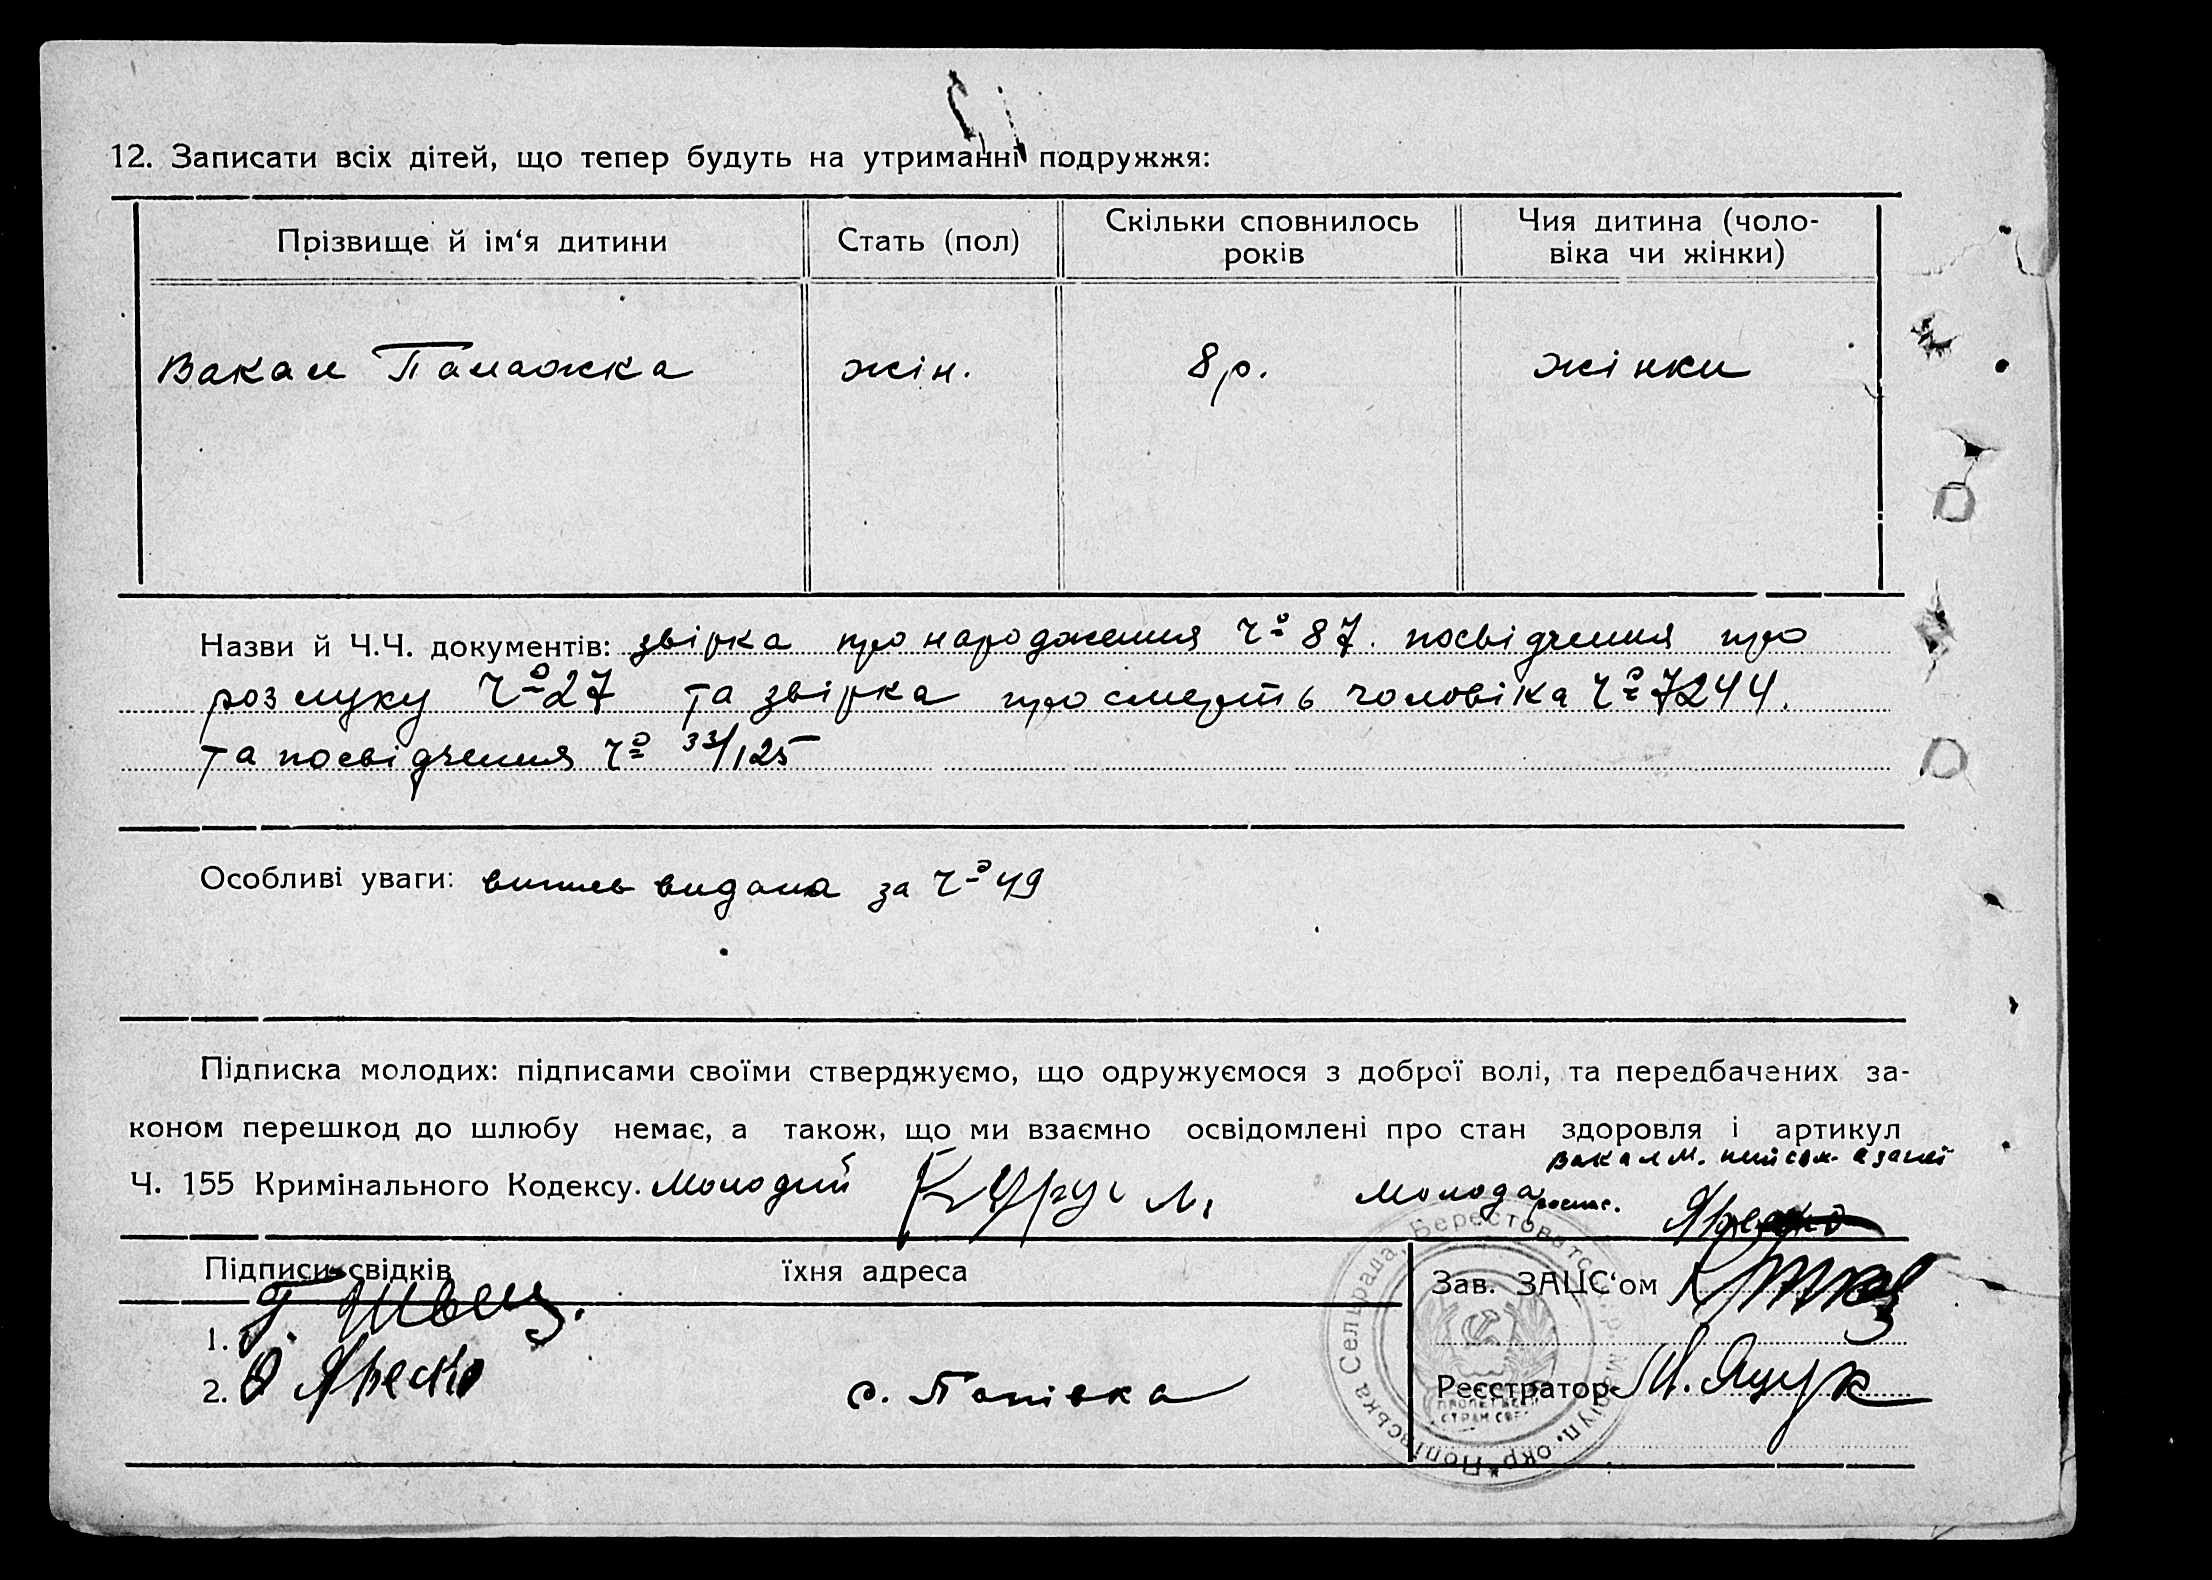 12. Записати всіх дітей, що тепер будуть на утриманні подружжя:
Прізвище й ім‘я дитини
Стать (пол)
Скільки сповнилось
років
Чия дитина (чоло-
віка чи жінки)
Вакал Палажка жін. 8 р. жінки
Назви й Ч.Ч. документів: звірка про народження Ч° 87. посвідчення про
розлуку Ч° 27 та звірка про смерть чоловіка Ч° 7244.
та посвідчення Ч° 33/125
Особливі уваги: випись видана за Ч° 49
Підписка молодих: підписами своїми стверджуємо, що одружуємося з доброї волі, та передбачених за-
коном перешкод до шлюбу немає, а також, що ми взаємно освідомлені про стан здоровля і артикул
Вакал М.
Ч. 155 Кримінального Кодексу. Молодий Молода
Підписи свідків
їхня адреса
Зав. ЗАЦС‘ом
1. Г. Швець.
2. О Яресько с. Попівка
Реєстратор М. Яцук
Попівська Сельрада, Берестоватс. р. Маріуп. окр.